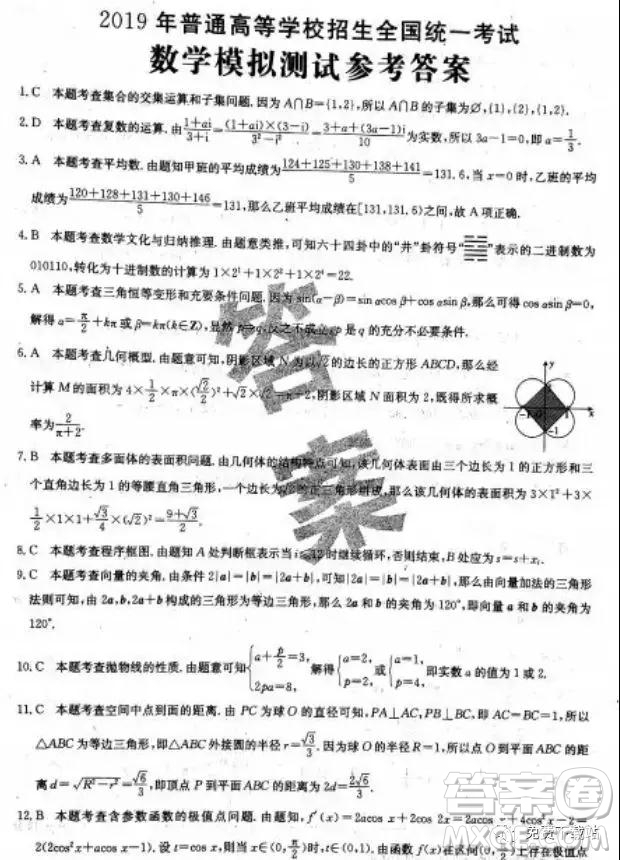 2019 年普通高等学校招生全国统一考试
数学模拟测试参考答案
1. C 本题考查集合的交集运算和子集问题. 因为 A∩B={1,2}, 所以 A∩B 的子集为∅, {1}, {2}, {1,2}.
2. D 本题考查复数的运算. 由 (1+ai)/(3+i) = (1+ai)×(3−i)/(3²−i²) = (3+a+(3a−1)i)/10 为实数, 所以 3a−1=0, 即 a=1/3.
3. A 本题考查平均数. 由题知甲班的平均成绩为 (124+125+130+138+141)/5 =131.6, 当 x=0 时, 乙班的平均
成绩为 (120+128+131+130+146)/5 =131, 那么乙班平均成绩在[131,131.6)之间, 故 A 项正确.
4. B 本题考查数学文化与归纳推理. 由题意类推, 可知六十四卦中的“井”卦符号“ ”表示的二进制数为
010110, 转化为十进制数的计算为 1×2¹+1×2²+1×2⁴=22.
5. A 本题考查三角恒等变形和充要条件问题. 因为 sin(α−β)=sin αcos β+cos αsin β, 那么可得 cos αsin β=0,
解得 α=π/2+kπ 或 β=kπ(k∈Z), 显然 p⇒q, 反之不成立, p 是 q 的充分不必要条件.
6. A 本题考查几何概型. 由题意可知, 阴影区域 N 为以√2的边长的正方形 ABCD, 那么经
计算 M 的面积为 4×1/2×π×(√2/2)²+√2×√2=π+2, 阴影区域 N 面积为 2, 既得所求概
率为 2/(π+2).
7. B 本题考查多面体的表面积问题. 由几何体的结构特点可知, 该几何体表面由三个边长为 1 的正方形和三
个直角边长为 1 的等腰直角三角形, 一个边长为√2的正三角形组成, 那么该几何体的表面积为 3×1²+3×
1/2×1×1+√3/4×(√2)²=(9+√3)/2.
8. C 本题考查程序框图. 由题知 A 处判断框表示当 i≤12 时继续循环, 否则结束, B 处应为 s=s+xᵢ.
9. C 本题考查向量的夹角. 由条件 2|a|=|b|=|2a+b|, 可知|2a|=|b|=|2a+b|, 那么由向量加法的三角形
法则可知, 由 2a, b, 2a+b 构成的三角形为等边三角形, 那么 2a 和 b 的夹角为 120°, 即向量 a 和 b 的夹角为
120°.
10. C 本题考查抛物线的性质. 由题意可知 {a+p/2=3, 2pa=8, 解得 {a=2, p=2, 或 {a=1, p=4, 即实数 a 的值为 1 或 2.
11. C 本题考查空间中点到面的距离. 由 PC 为球 O 的直径可知, PA⊥AC, PB⊥BC, 即 AC=BC=1, 所以
△ABC 为等边三角形, 即△ABC 外接圆的半径 r=√3/3. 因为球 O 的半径 R=1, 所以点 O 到平面 ABC 的距
离 d=√(R²−r²)=√6/3, 即顶点 P 到平面 ABC 的距离为 2√6/3.
12. B 本题考查含参数函数的极值点问题. 由题知, f′(x)=2acos x+2cos 2x=2acos x+4cos²x−2=
2(2cos²x+acos x−1). 设 t=cos x, 则当 x∈(0,π/2)时, t∈(0,1). 由函数 f(x)在区间(0,π/2)上存在极值点
答案